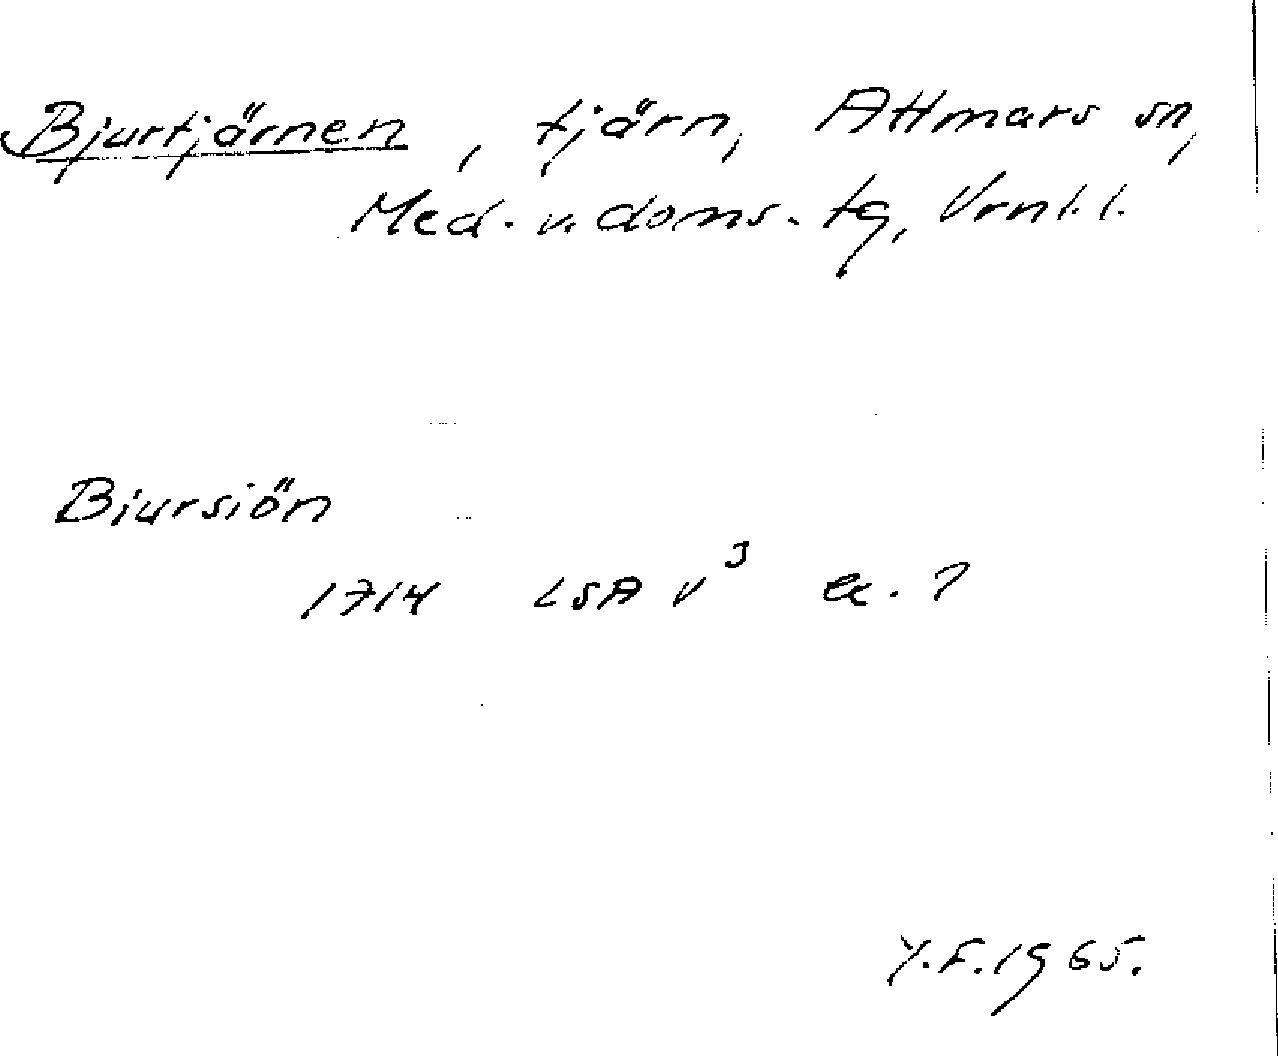 Bjurtjärnen, tjärn, Attmars sn,
Med. v. doms. tg, Vrnl. l.
Biursiön
1714 LSA V³ a. ?
Y.F. 1965.